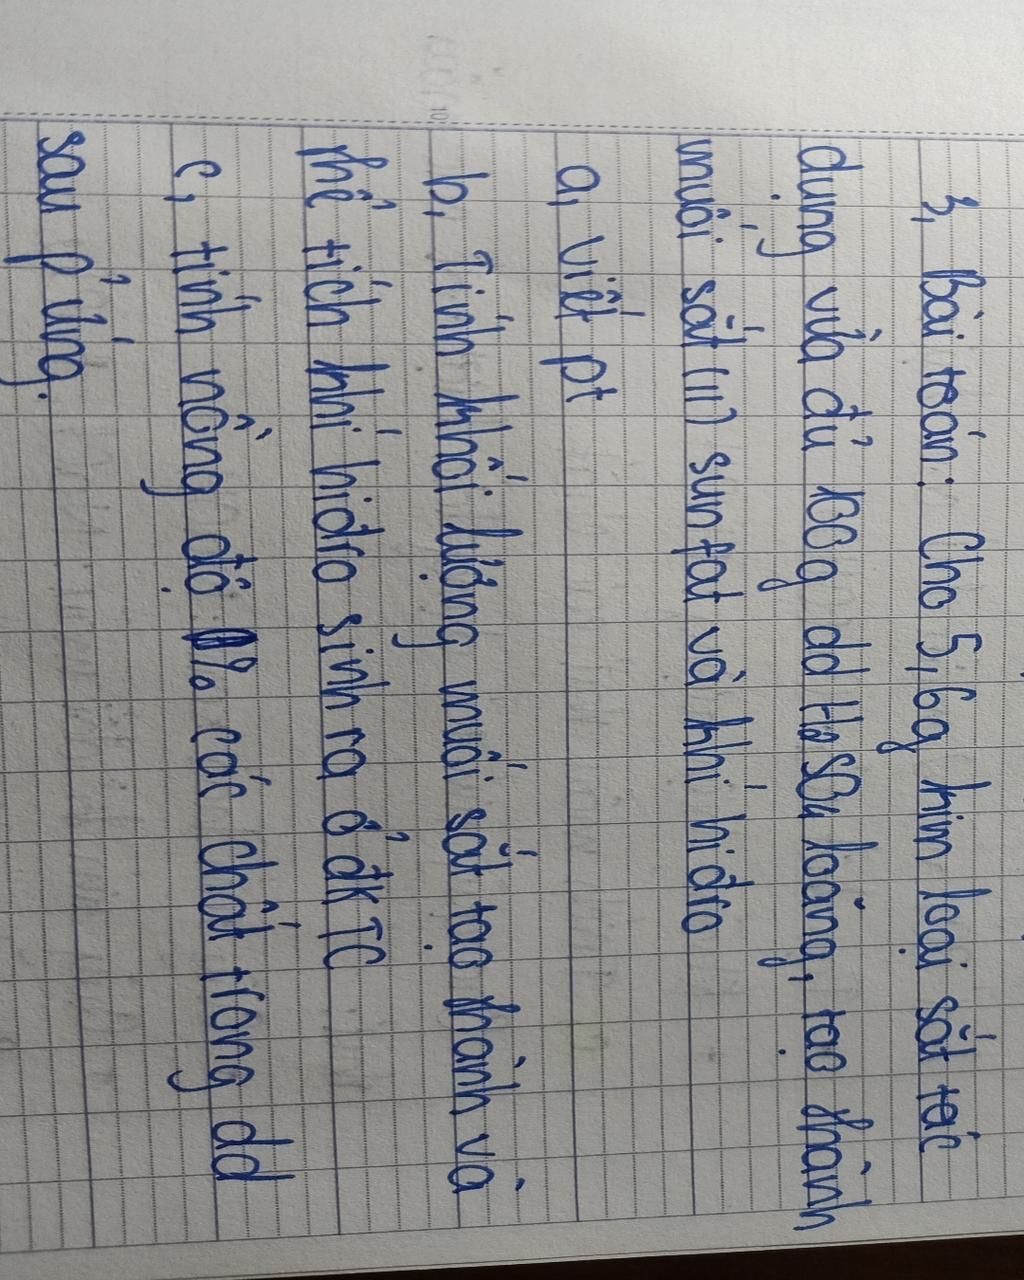 3, Bài toán: Cho 5,6g kim loại sắt tác
dụng vừa đủ 100g dd H₂SO₄ loãng, tạo thành
muối sắt (II) sunfat và khí hiđro
a, viết pt
b, Tính khối lượng muối sắt tạo thành và
thể tích khí hiđro sinh ra ở đkTC
c, tính nồng độ % các chất trong dd
sau p̉ ứng.